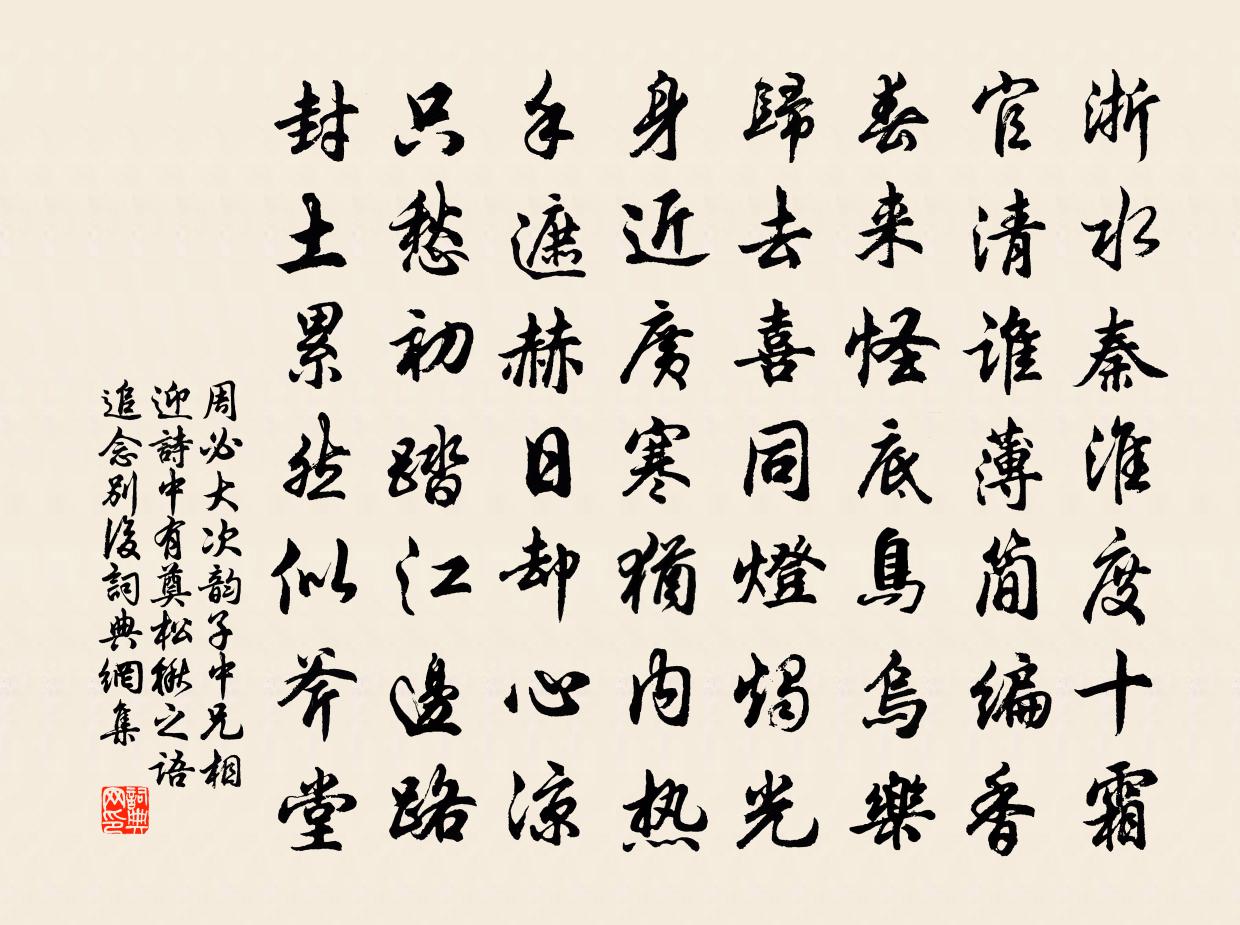 浙水秦淮度十霜
官清誰薄简編香
春来怪底鳥烏樂
歸去喜同燈燭光
身近廣寒猶内热
手遮赫日却心涼
只愁初踏江邊路
封土累然似斧堂
周必大次韵子中兄相
迎詩中有奠松楸之語
追念别後詞典網集
詞典网印